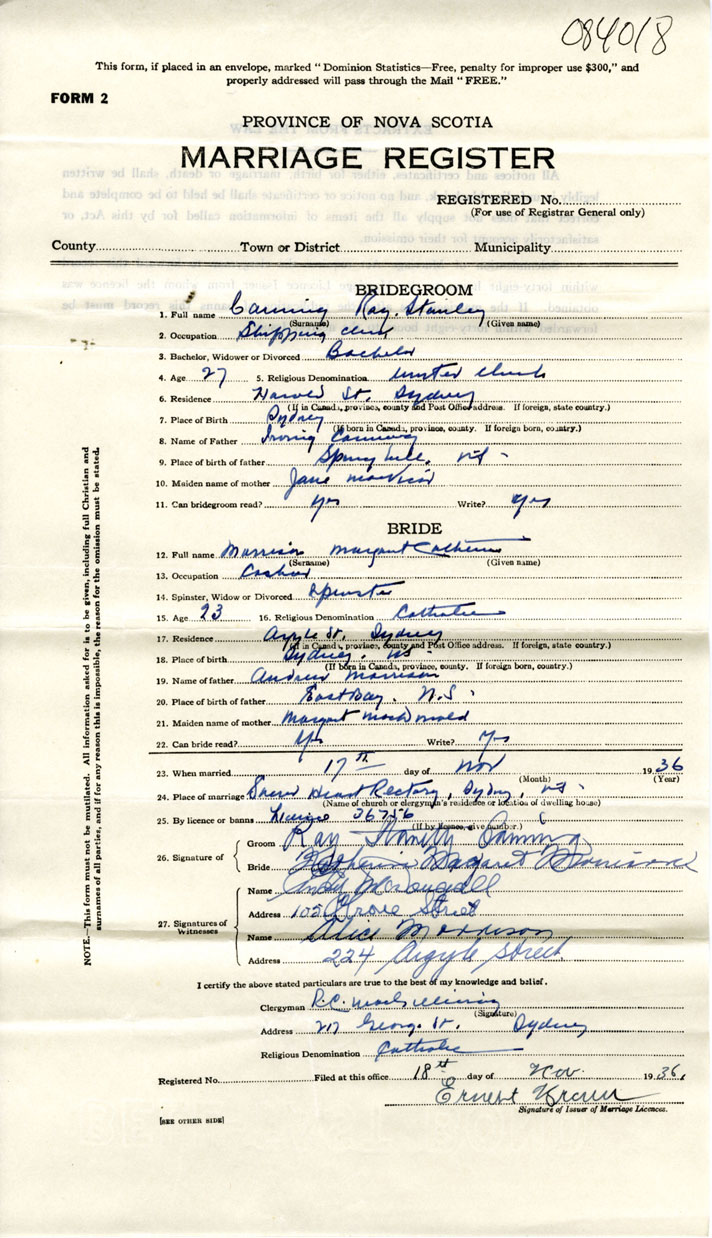 084018
This form, if placed in an envelope, marked " Dominion Statistics—Free, penalty for improper use $300," and
properly addressed will pass through the Mail " FREE."
FORM 2
PROVINCE OF NOVA SCOTIA
MARRIAGE REGISTER
REGISTERED No.
(For use of Registrar General only)
County Town or District Municipality
BRIDEGROOM
1. Full name Canning Ray. Stanley
(Surname) (Given name)
2. Occupation Shipping clerk
3. Bachelor, Widower or Divorced Bachelor
4. Age 27 5. Religious Denomination United Church
6. Residence Harold St. Sydney
(If in Canada, province, county and Post Office address. If foreign, state country.)
7. Place of Birth Sydney
(If born in Canada, province, county. If foreign born, country.)
8. Name of Father Irving Canning
9. Place of birth of father Spring hill. NS
10. Maiden name of mother Jane
11. Can bridegroom read? yes Write? yes
BRIDE
12. Full name Morrison Margaret Catherine
(Surname) (Given name)
13. Occupation Cashier
14. Spinster, Widow or Divorced Spinster
15. Age 23 16. Religious Denomination Catholic
17. Residence Argyle St. Sydney
(If in Canada, province, county and Post Office address. If foreign, state country.)
18. Place of birth Sydney. NS
(If born in Canada, province, county. If foreign born, country.)
19. Name of father Andrew Morrison
20. Place of birth of father East Bay. N.S.
21. Maiden name of mother Margaret MacDonald
22. Can bride read? Yes Write? Yes
23. When married 17th day of Nov 1936
(Month) (Year)
24. Place of marriage Sacred Heart Rectory, Sydney, NS
(Name of church or clergyman's residence or location of dwelling house)
25. By licence or banns License 36756
(If by licence, give number.)
26. Signature of Groom Ray Stanley Canning
Bride Katherine Margaret Morrison
27. Signatures of Witnesses
Name McDougall
Address 102 Grove Street
Name Alice Morrison
Address 224 Argyle Street
I certify the above stated particulars are true to the best of my knowledge and belief.
Clergyman R.C.
(Signature)
Address 217 George St. Sydney
Religious Denomination Catholic
Registered No. Filed at this office 18th day of Nov. 1936.
Ernest
Signature of Issuer of Marriage Licences.
[SEE OTHER SIDE]
NOTE.—This form must not be mutilated. All information asked for is to be given, including full Christian and
surnames of all parties, and if for any reason this is impossible, the reason for the omission must be stated.